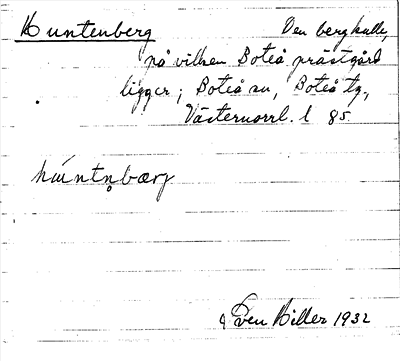 Huntenberg Den bergkulle,
på vilken Boteå prästgård
ligger; Boteå sn, Boteå tg,
Västernorrl. l 85
húntn̥bærg
Sven Hiller 1932